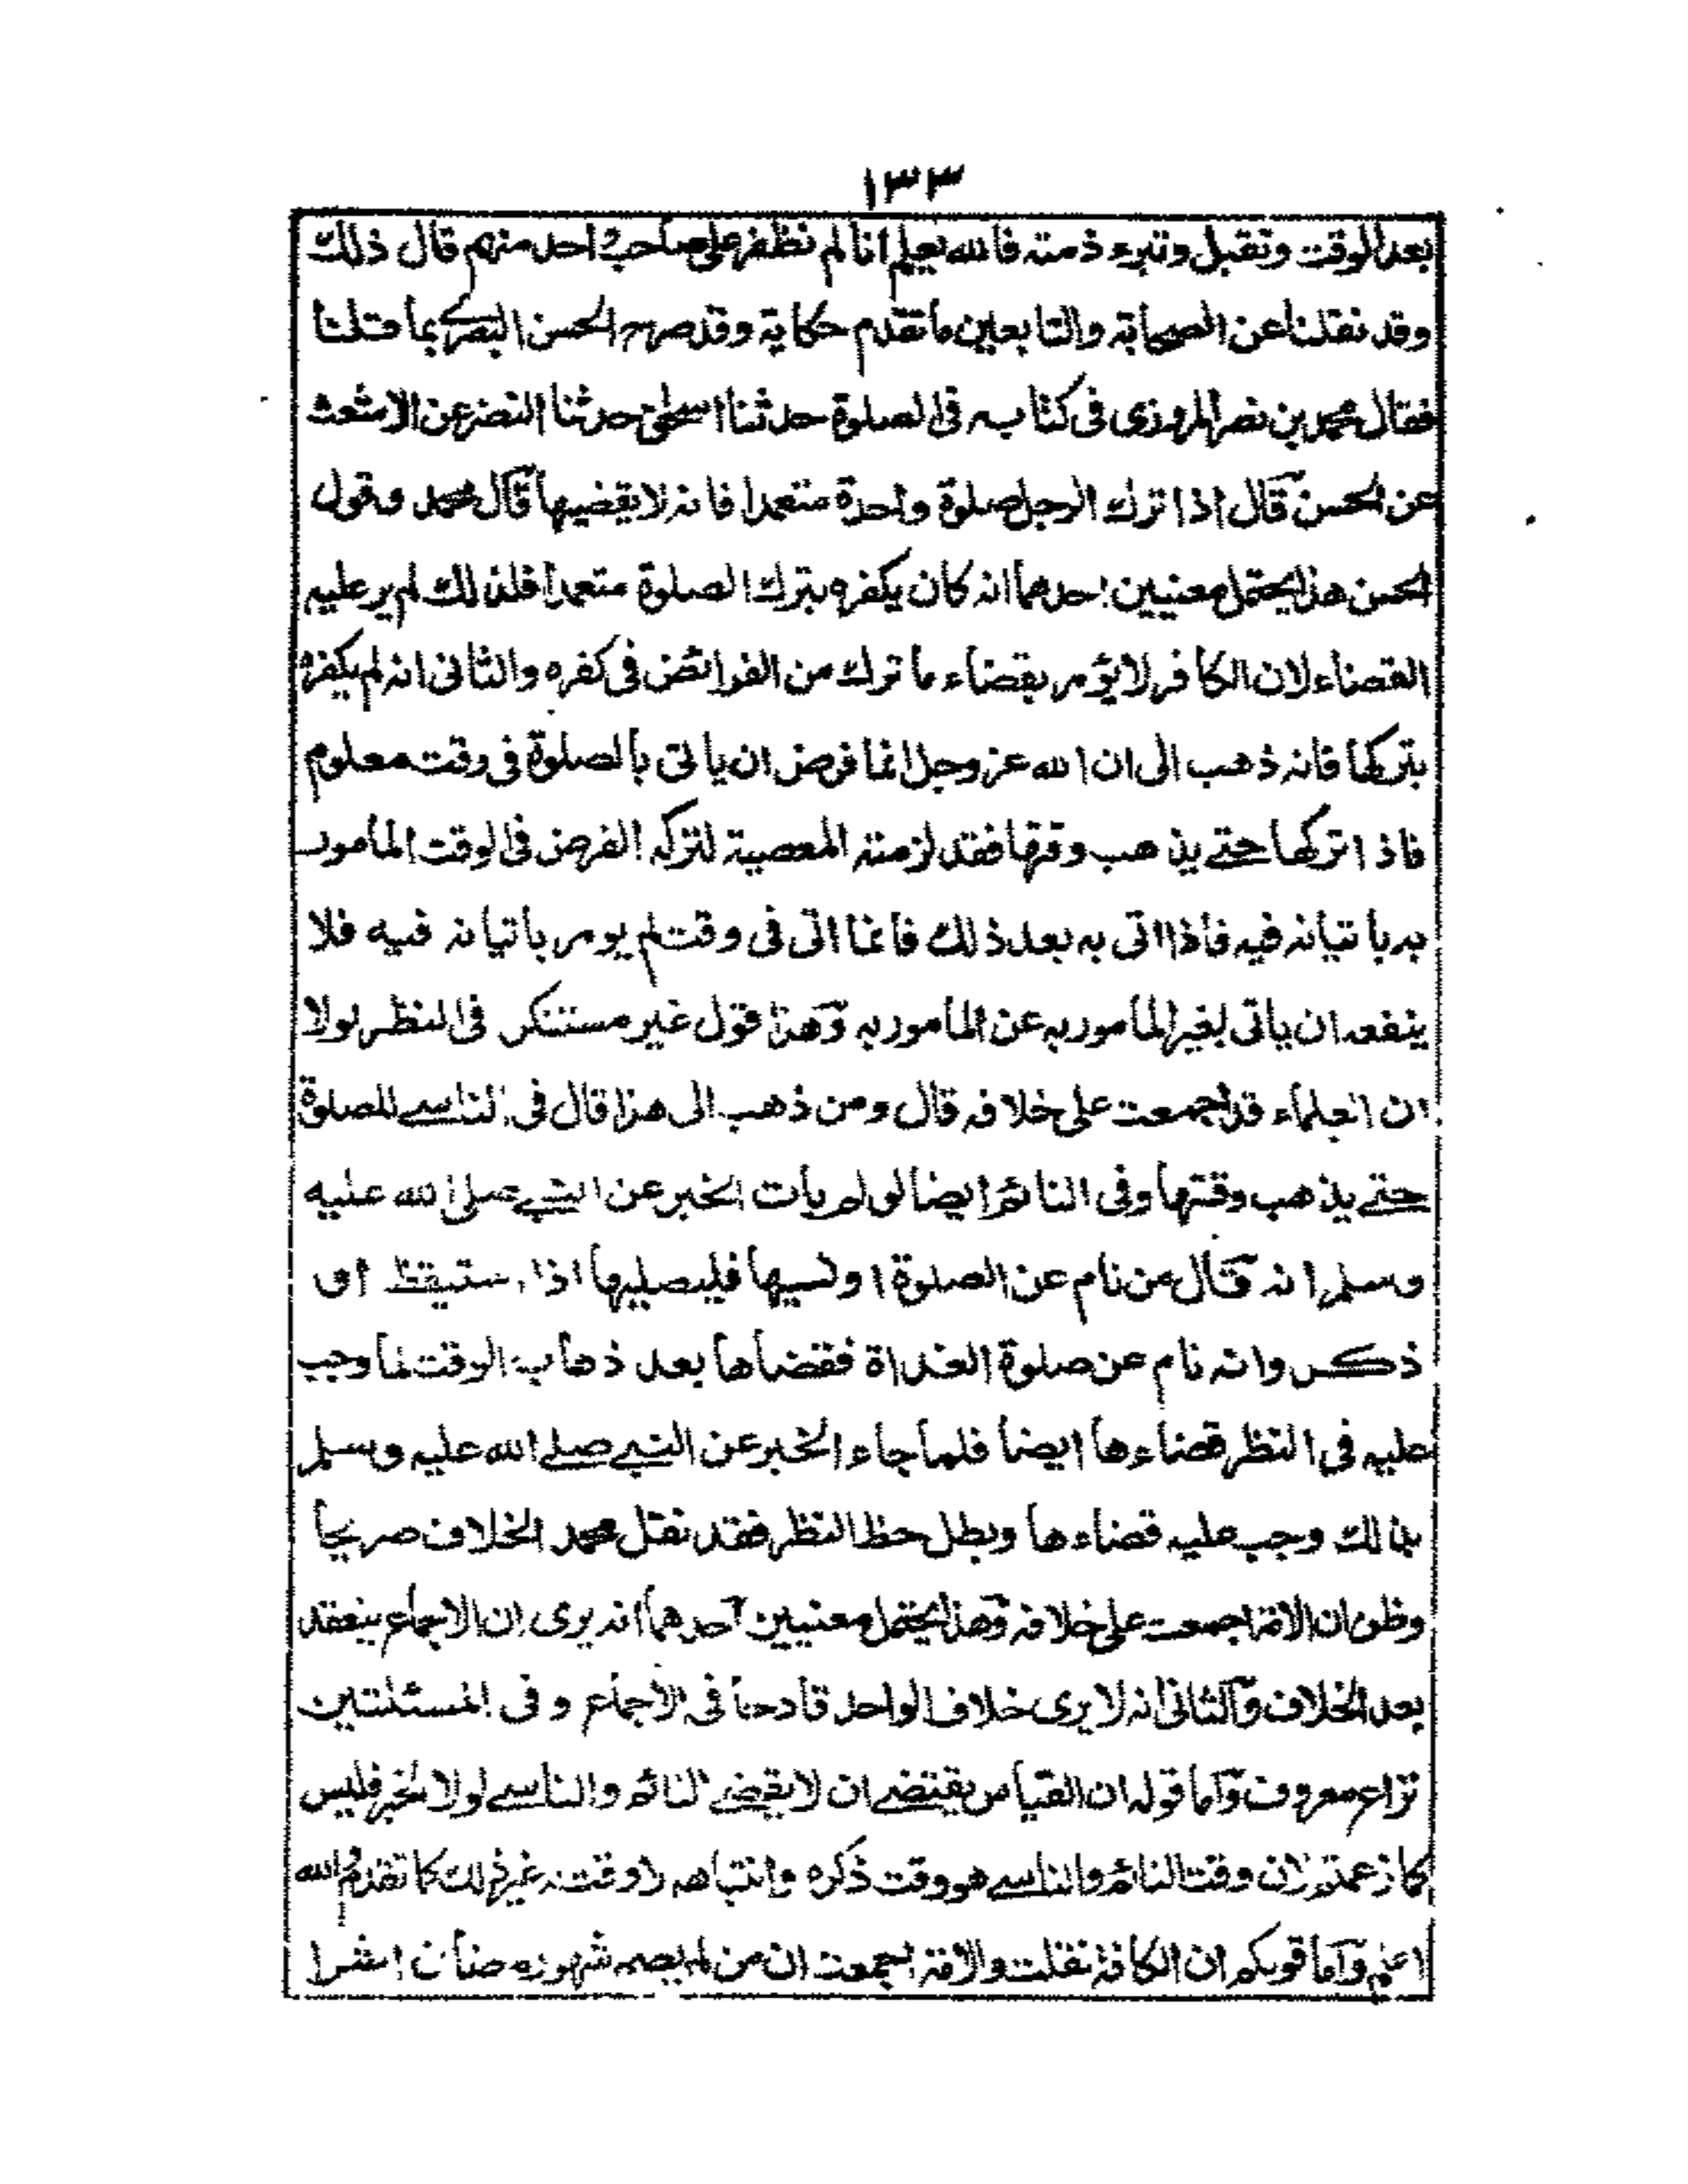 ١٣٣
بعد الوقت وتقبل وتبرء ذمته فالله يعلم انا لم نظفر على صاحب واحد منهم قال ذلك
وقد نقلنا عن الصحابة والتابعين ما تقدم حكاية وقد صرح الحسن البصرى بما قلنا
فقال محمد بن نصر المروزى فى كتابه فى الصلوة حدثنا اسحق حدثنا النضر عن الاشعث
عن الحسن قال اذا ترك الرجل صلوة واحدة متعمدا فانه لا يقضيها قال محمد وقول
الحسن هذا يحتمل معنيين احدهما انه كان يكفره بترك الصلوة متعمدا فلذلك لم ير عليه
القضاء لان الكافر لا يؤمر بقضاء ما ترك من الفرائض فى كفره والثانى انه لم يكفره
بتركها فانه ذهب الى ان الله عز وجل انما فرض ان ياتى بالصلوة فى وقت معلوم
فاذا تركها حتے يذهب وقتها فقد لزمته المعصية لتركه الفرض فى الوقت المأمور
به باتيانه فيه فاذا اتى به بعد ذلك فانما اتى فى وقت لم يومر باتيانه فيه فلا
ينفعه ان ياتى بغير المأمور به عن المأمور به وهذا قول غير مستنكر فى النظر لولا
ان العلماء قد اجمعت على خلافه قال ومن ذهب الى هذا قال فى الناسے للصلوة
حتے يذهب وقتها وفى النائم ايضا لو لم يأت الخبر عن النبے صلى الله عليه
وسلم انه قال من نام عن الصلوة او نسيها فليصليها اذا استيقظ او
ذكر وانه نام عن صلوة الغداة فقضاها بعد ذهاب الوقت لما وجب
عليه فى النظر قضاءها ايضا فلما جاء الخبر عن النبے صلے الله عليه وسلم
بذالك وجب عليه قضاءها وبطل حظ النظر فقد نقل محمد الخلاف صريحا
وظن ان الامة اجمعت على خلافه وهذا يحتمل معنيين احدهما انه يرى ان الاجماع ينعقد
بعد الخلاف والثانى انه لا يرى خلاف الواحد قادحا فى الاجماع وفى المسئلتين
نزاع معروف واما قوله ان القياس يقتضے ان لا يقضے النائم والناسے لولا الخبر فليس
كما زعمتم لان وقت النائم والناسے هو وقت ذكره وانتباهه لا وقت له غير ذلك كما تقدم والله
اعلم واما قولكم ان الكافة نقلت والامة اجمعت ان من لم يصم شهر رمضان اشرا